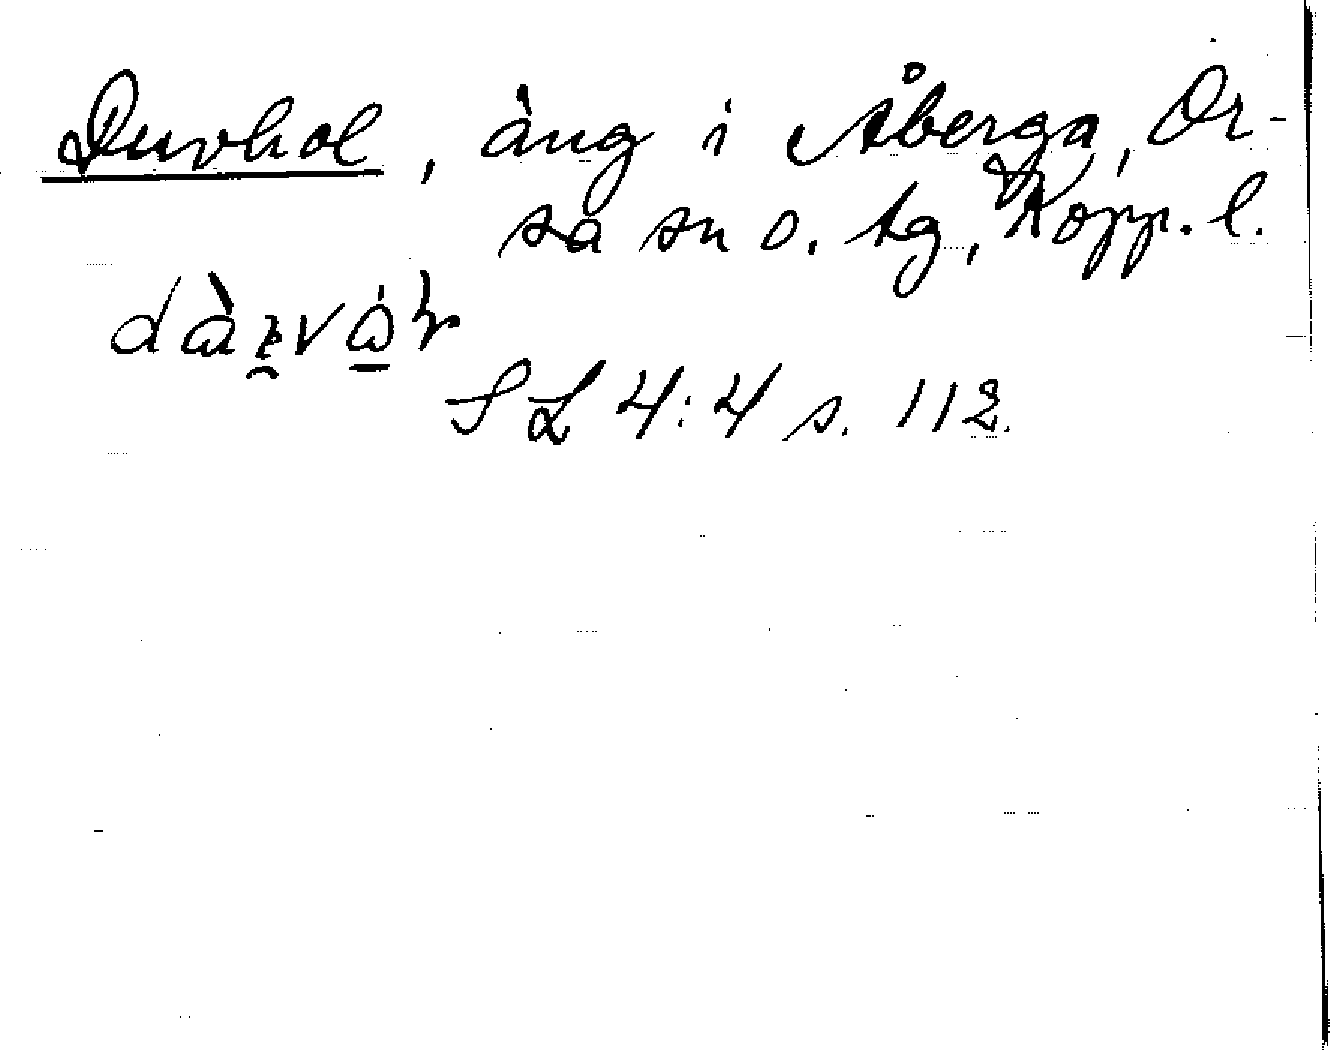 Duvhol, äng i Åberga, Or-
sa sn o. tg, Kopp. l.
SL 4:4 s. 112.